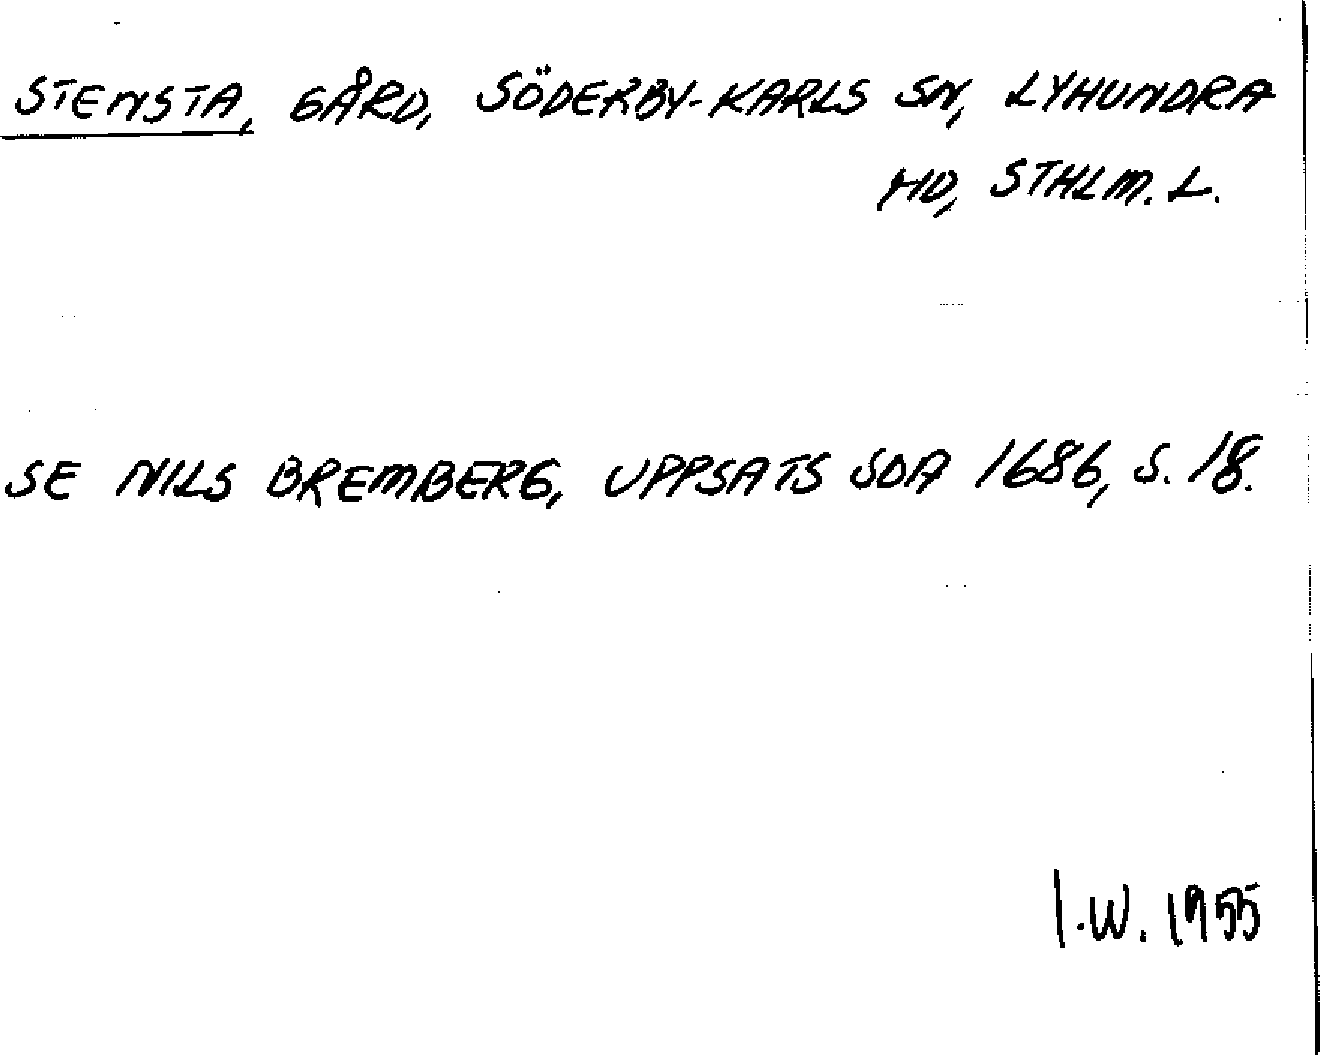 STENSTA, GÅRD, SÖDERBY-KARLS SN, LYHUNDRA
HD, STHLM. L.
SE NILS BREMBERG, UPPSATS SOA 1686, S. 18.
I.W. 1955